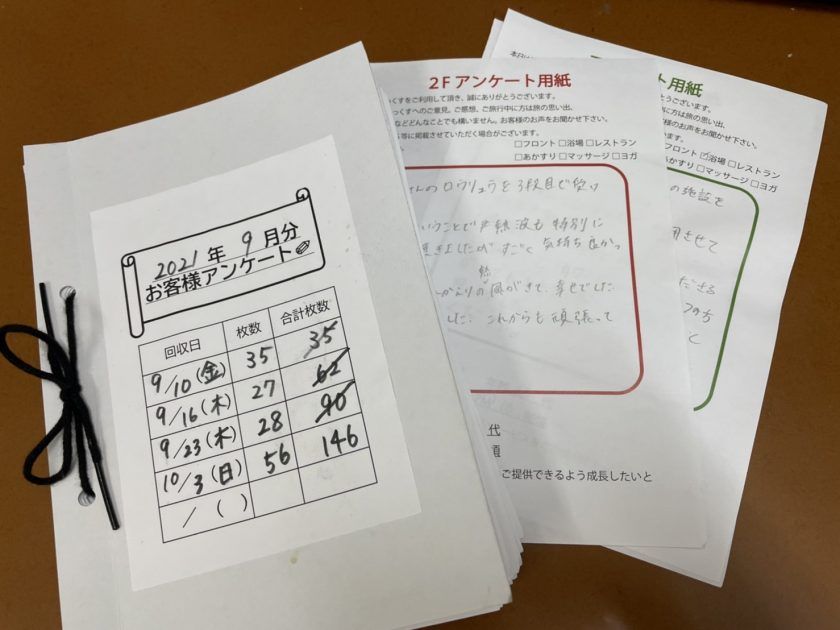 2021年 9月分
お客様アンケート
回収日 枚数 合計枚数
9/10(金) 35 35
9/16(木) 27 62
9/23(木) 28 90
10/3(日) 56 146
/ ( )
2Fアンケート用紙
っくすをご利用して頂き、誠にありがとうございます。
っくすへのご意見、ご感想、ご旅行中に方は旅の思い出、
などどんなことでも構いません。お客様のお声をお聞かせ下さい。
等に掲載させていただく場合がございます。
□フロント □浴場 □レストラン
□あかすり □マッサージ □ヨガ
さんのロウリュウを3段目で受け
いうことで 熱波も特別に
頂きましたが すごく 気持ち良かっ
熱の風がきて、幸せでした
した。これからも頑張って
代
ご提供できるよう成長したいと
本日は
ト用紙
とうございます。
に方は旅の思い出、
お客様のお声をお聞かせ下さい。
フロント ☑浴場 □レストラン
あかすり □マッサージ □ヨガ
の施設を
用させて
ださる
の方
と